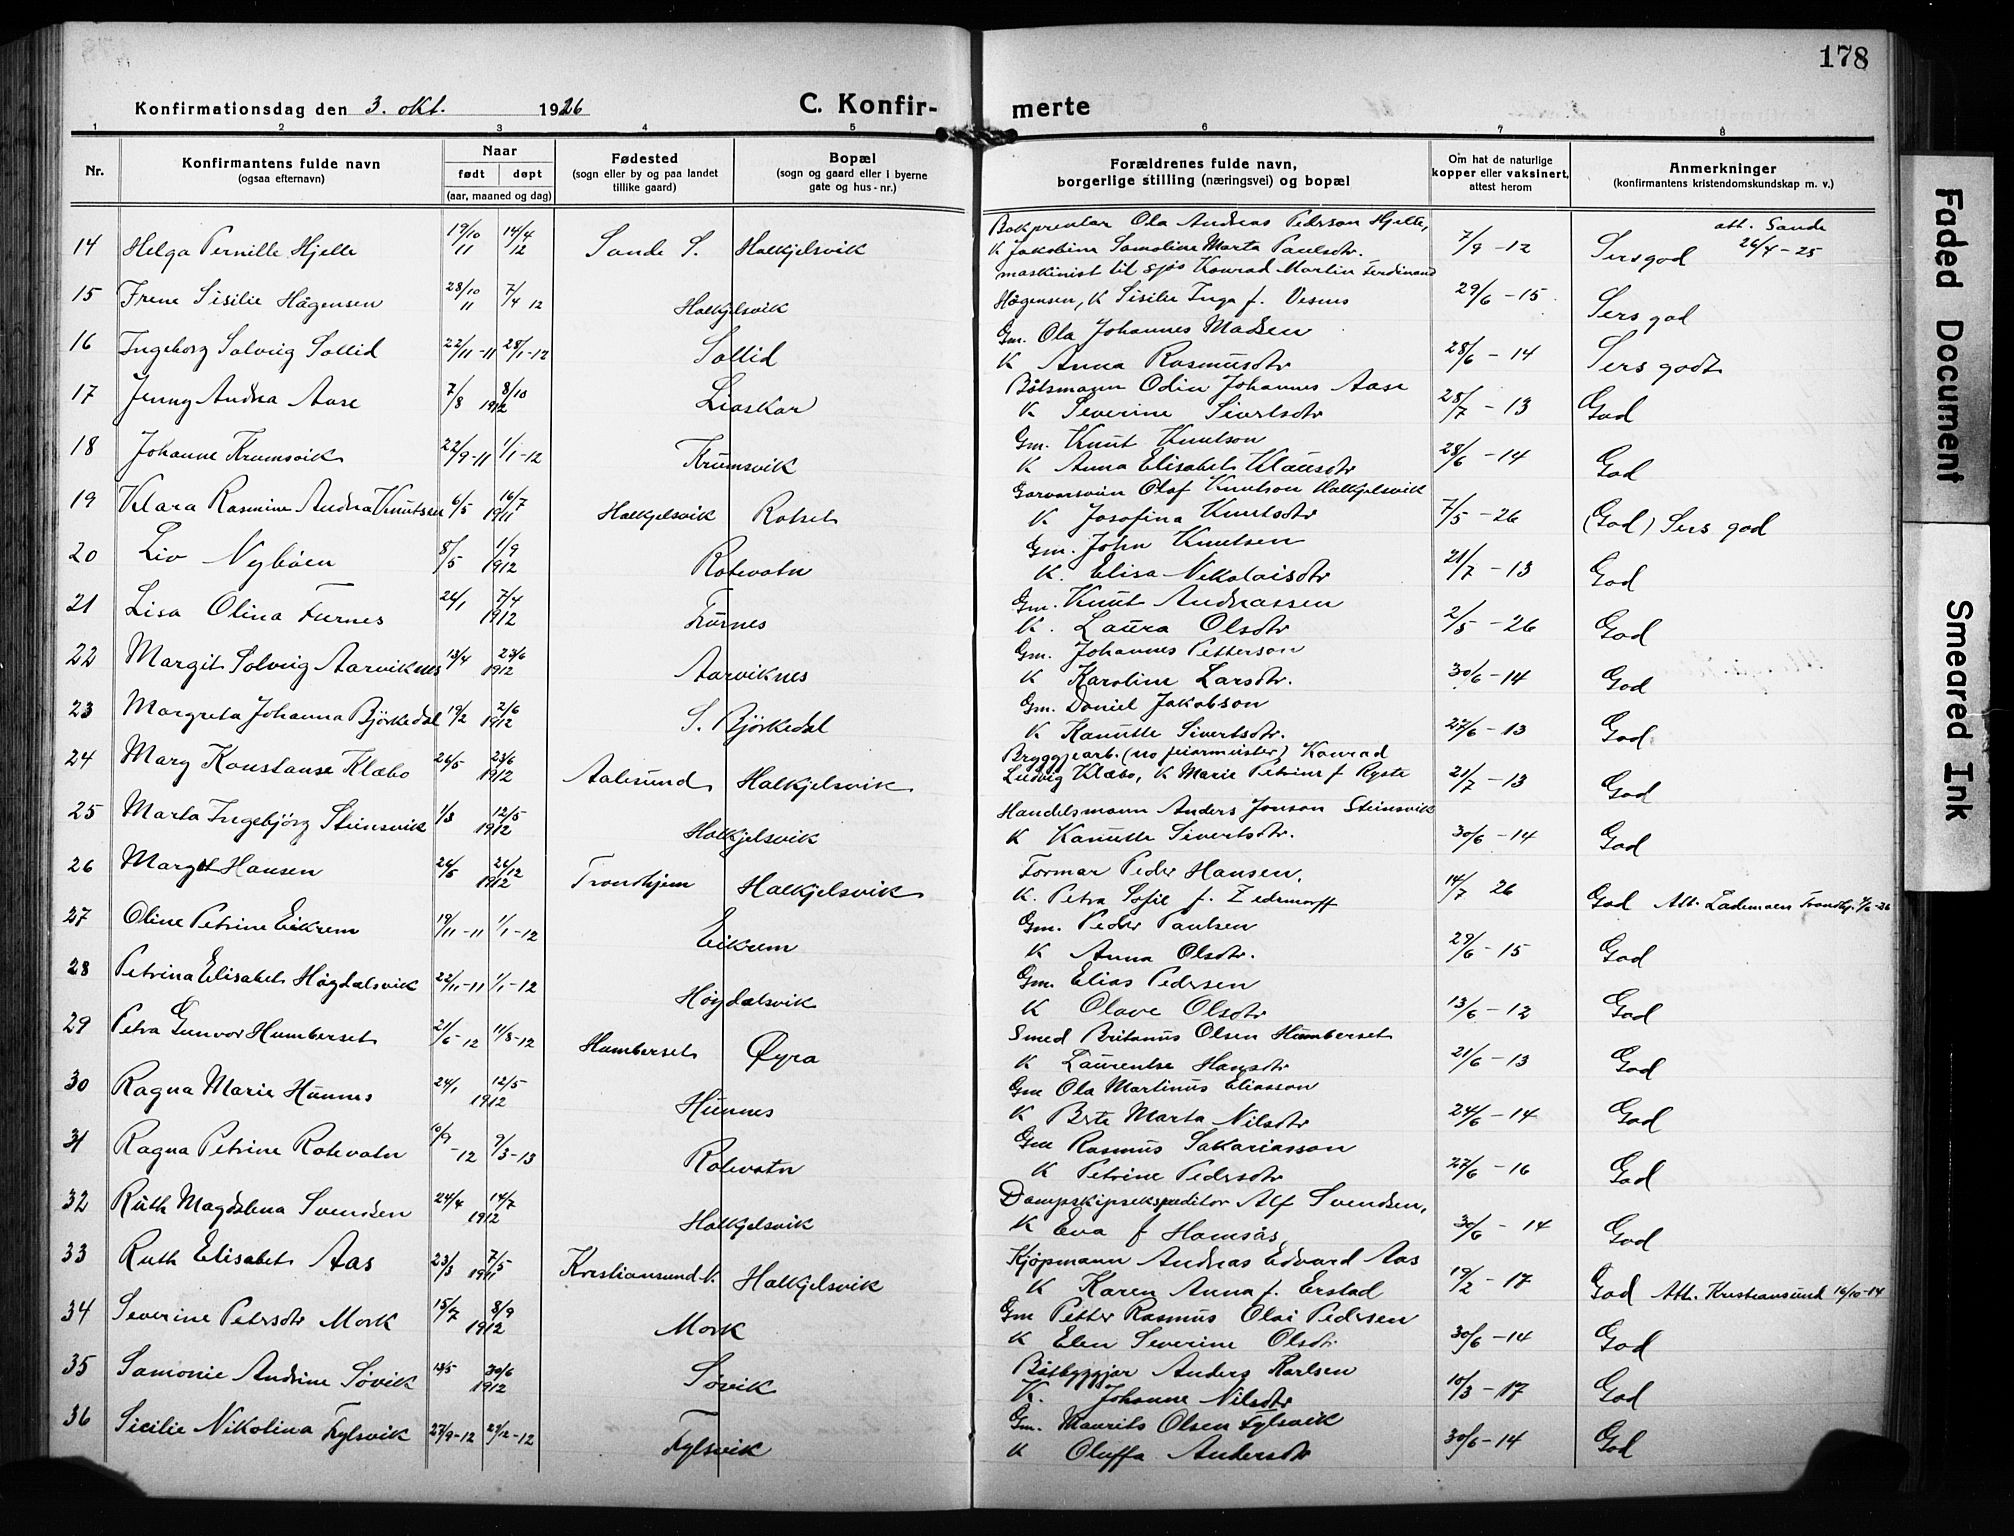 178
Konfirmationsdag den 3. okt. 1926
C. Konfirmerte
1 2 3 4 5 6 7 8
Nr.
Konfirmantens fulde navn
(ogsaa efternavn)
Naar
født døpt
(aar, maaned og dag)
Fødested
(sogn eller by og paa landet
tillike gaard)
Bopæl
(sogn og gaard eller i byerne
gate og hus-nr.)
Forældrenes fulde navn,
borgerlige stilling (næringsvei) og bopæl
Om hat de naturlige
kopper eller vaksinert,
attest herom
Anmerkninger
(konfirmantens kristendomskundskap m. v.)
14 Helga Pernille Hjelle 19/10 11 14/4 12 Sande S. Halkjelsvik Bokprentar Ola Andreas Pederson Hjelle, K Jakobine Samoline Marta Paulsdtr. 7/9 - 12 Sers god att. Sande 26/4 - 25
15 Irene Sisilie Hågensen 28/10 11 7/4 12 Halkjelsvik maskinist til sjøs Konrad Martin Ferdinand Hågensen, K Sisilie Inga f. Vesnes 29/6 - 15 Sers god
16 Ingeborg Solveig Sollid 22/11 - 11 28/1 - 12 Sollid Gm. Ola Johannes Madsen K Anna Rasmusdtr 28/6 - 14 Sers godt
17 Jenny Andrea Aase 7/8 8/10 1912 Lioskar Båtsmann Odin Johannes Aase K Severine Sivertsdtr 28/7 - 13 God
18 Johanne Krumsvik 22/9 - 11 1/1 - 12 Krumsvik Gm. Knut Knutson K Anna Elisabet Klausdtr 28/6 - 14 God
19 Klara Rasmine Andrea Knutsen 6/5 16/7 1911 Halkjelsvik Rotset Garvarsvein Olaf Knutson Halkjelsvik K Josefina Knutsdtr 7/5 - 26 (God) Sers god
20 Liv Nybøen 8/5 1/9 1912 Rotevatn Gm. John Knutsen K. Elisa Nikolaisdtr 21/7 - 13 God
21 Lisa Olina Furnes 26/1 7/4 1912 Furnes Gm. Knut Andreassen K. Laura Olsdtr 2/5 - 26 God
22 Margit Solveig Aarviknes 13/4 23/6 1912 Aarviknes Gm. Johannes Petterson K Karoline Larsdtr. 30/6 - 14 God
23 Margreta Johanna Björkedal 19/2 2/6 1912 S. Björkedal Gm. Daniel Jakobson K Kanutte Sivertsdtr. 27/6 - 13 God
24 Mary Konstanse Klæbo 26/5 23/6 1912 Aalesund Halkjelsvik Bryggjearb. (no feiarmeister) Konrad Ludvig Klæbo, K Marie Petrine f Ryste 21/7 - 13 God
25 Marta Ingebjörg Steinsvik 1/3 12/5 1912 Halkjelsvik Handelsmann Anders Jonson Steinsvik K Kanutte Sivertsdtr. 30/6 - 14 God
26 Margot Hansen 26/5 26/12 1912 Trondhjem Halkjelsvik Formar Peder Hansen, K. Petra Sofie f. Zedermorff 14/7 26 God Att. Lademoen Trondhj.
27 Oline Petrine Eikrem 19/11 - 11 1/1 - 12 Eikrem Gm. Peder Paulsen K Anna Olsdtr. 29/6 - 15 God
28 Petrina Elisabet Høgdalsvik 22/11 - 11 1/1 - 12 Høgdalsvik Gm. Elias Pedersen K Olave Olsdtr 13/6 - 12 God
29 Petra Gunvor Humberset 21/6 - 12 11/8 - 12 Humberset Øyra Smed Britanus Olsen Humberset K Laurentse Hansdtr 21/6 - 13 God
30 Ragna Marie Hunnes 24/1 12/5 1912 Hunnes Gm Ola Martinus Eliasson K Brte Marta Nilsdtr 24/6 - 14 God
31 Ragna Petrine Rotevatn 10/9 - 12 9/3 - 13 Rotevatn Gm Rasmus Sakariasson K Petrine Pedersdtr 27/6 - 16 God
32 Ruth Magdalena Svendsen 24/4 14/7 1912 Halkjelsvik Dampskipsekspeditør Alf Svendsen, K Eva f Hamsås 30/6 - 14 God
33 Ruth Elisabet Aas 23/3 7/5 1911 Kristiansund N. Halkjelsvik Kjøpmann Andreas Edvard Aas K Karen Anna f. Erstad 19/2 - 17 God Att. Kristiansund 16/10 - 14
34 Severine Petersdtr Mork 15/7 8/9 1912 Mork Gm Petter Rasmus Olai Pedersen K Elen Severine Olsdtr 30/6 - 14 God
35 Samonie Andrine Søvik 13/5 30/6 1912 Søvik Båtbyggjar Anders Karlsen K. Johanne Nilsdtr 10/3 - 17 God
36 Sicilie Nikolina Fylsvik 27/9 - 12 27/12 - 12 Fylsvik Gm. Maurits Olsen Fylsvik K Oluffa Andersdtr 30/6 - 14 God
Faded Document
Smeared Ink